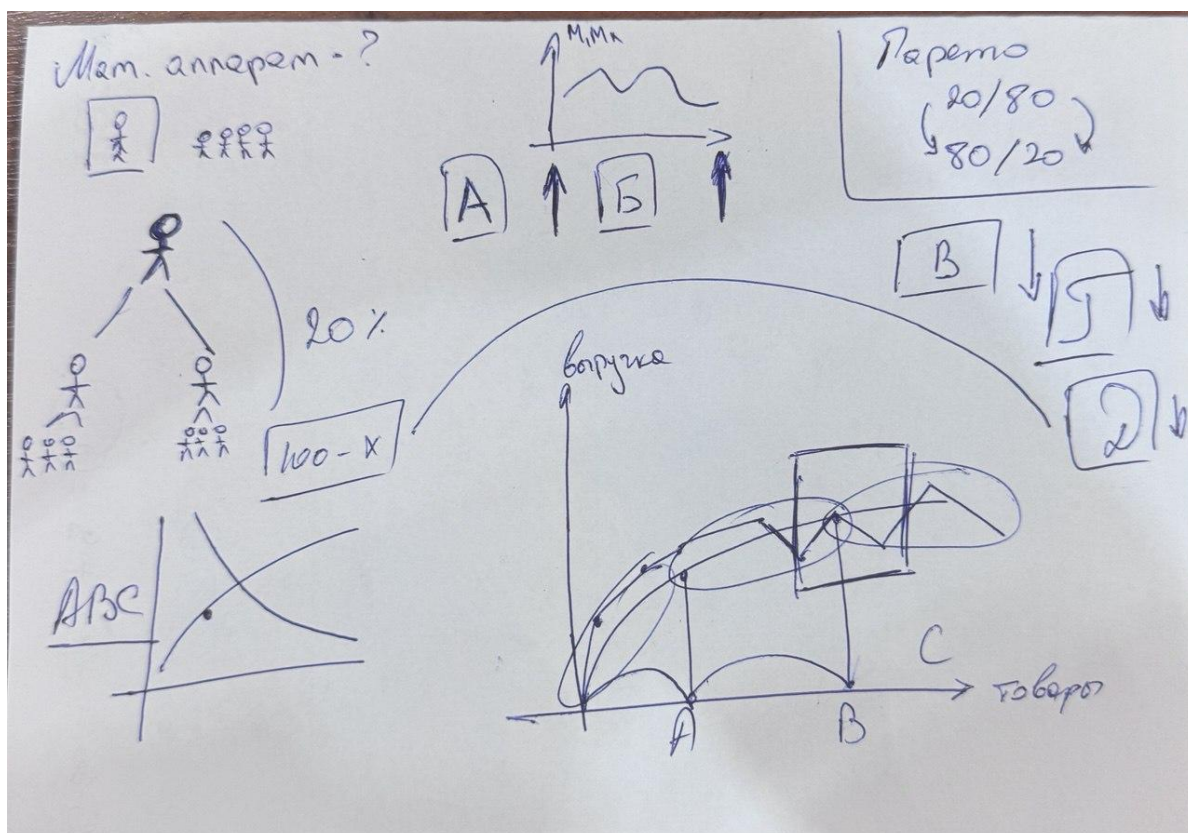 Мат. аппарат - ?
Парето
20/80
80/20
А
Б
В
Г
Д
20%
100-X
выручка
ABC
C
товары
A
B